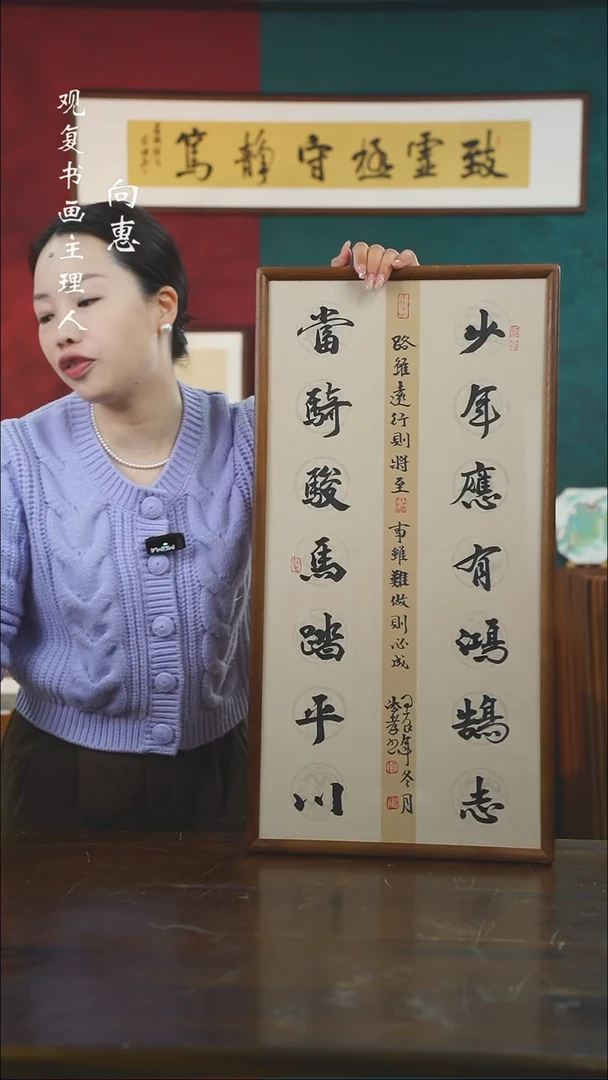 观复书画主理人
向惠
致虚極守静篤
少年應有鴻鵠志
路雖遠行則將至
事雖難做則必成
甲辰年冬月
當騎駿馬踏平川